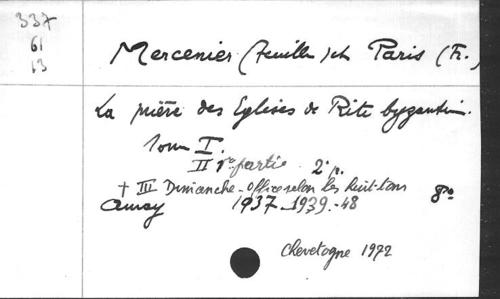 337
61
13
Mercenier (Feuillen) et Paris (Fr.)
La prière des Eglises de Rite byzantin.
Tome I.
II 1re partie. 2e p.
† III Dimanche - Office selon les huit tons
Amay 1937-1939-48 8°
Chevetogne 1972